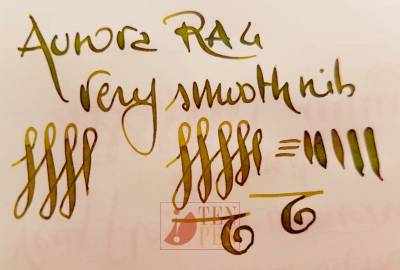 Aurora RA4
very smooth nib
TEN
PEN